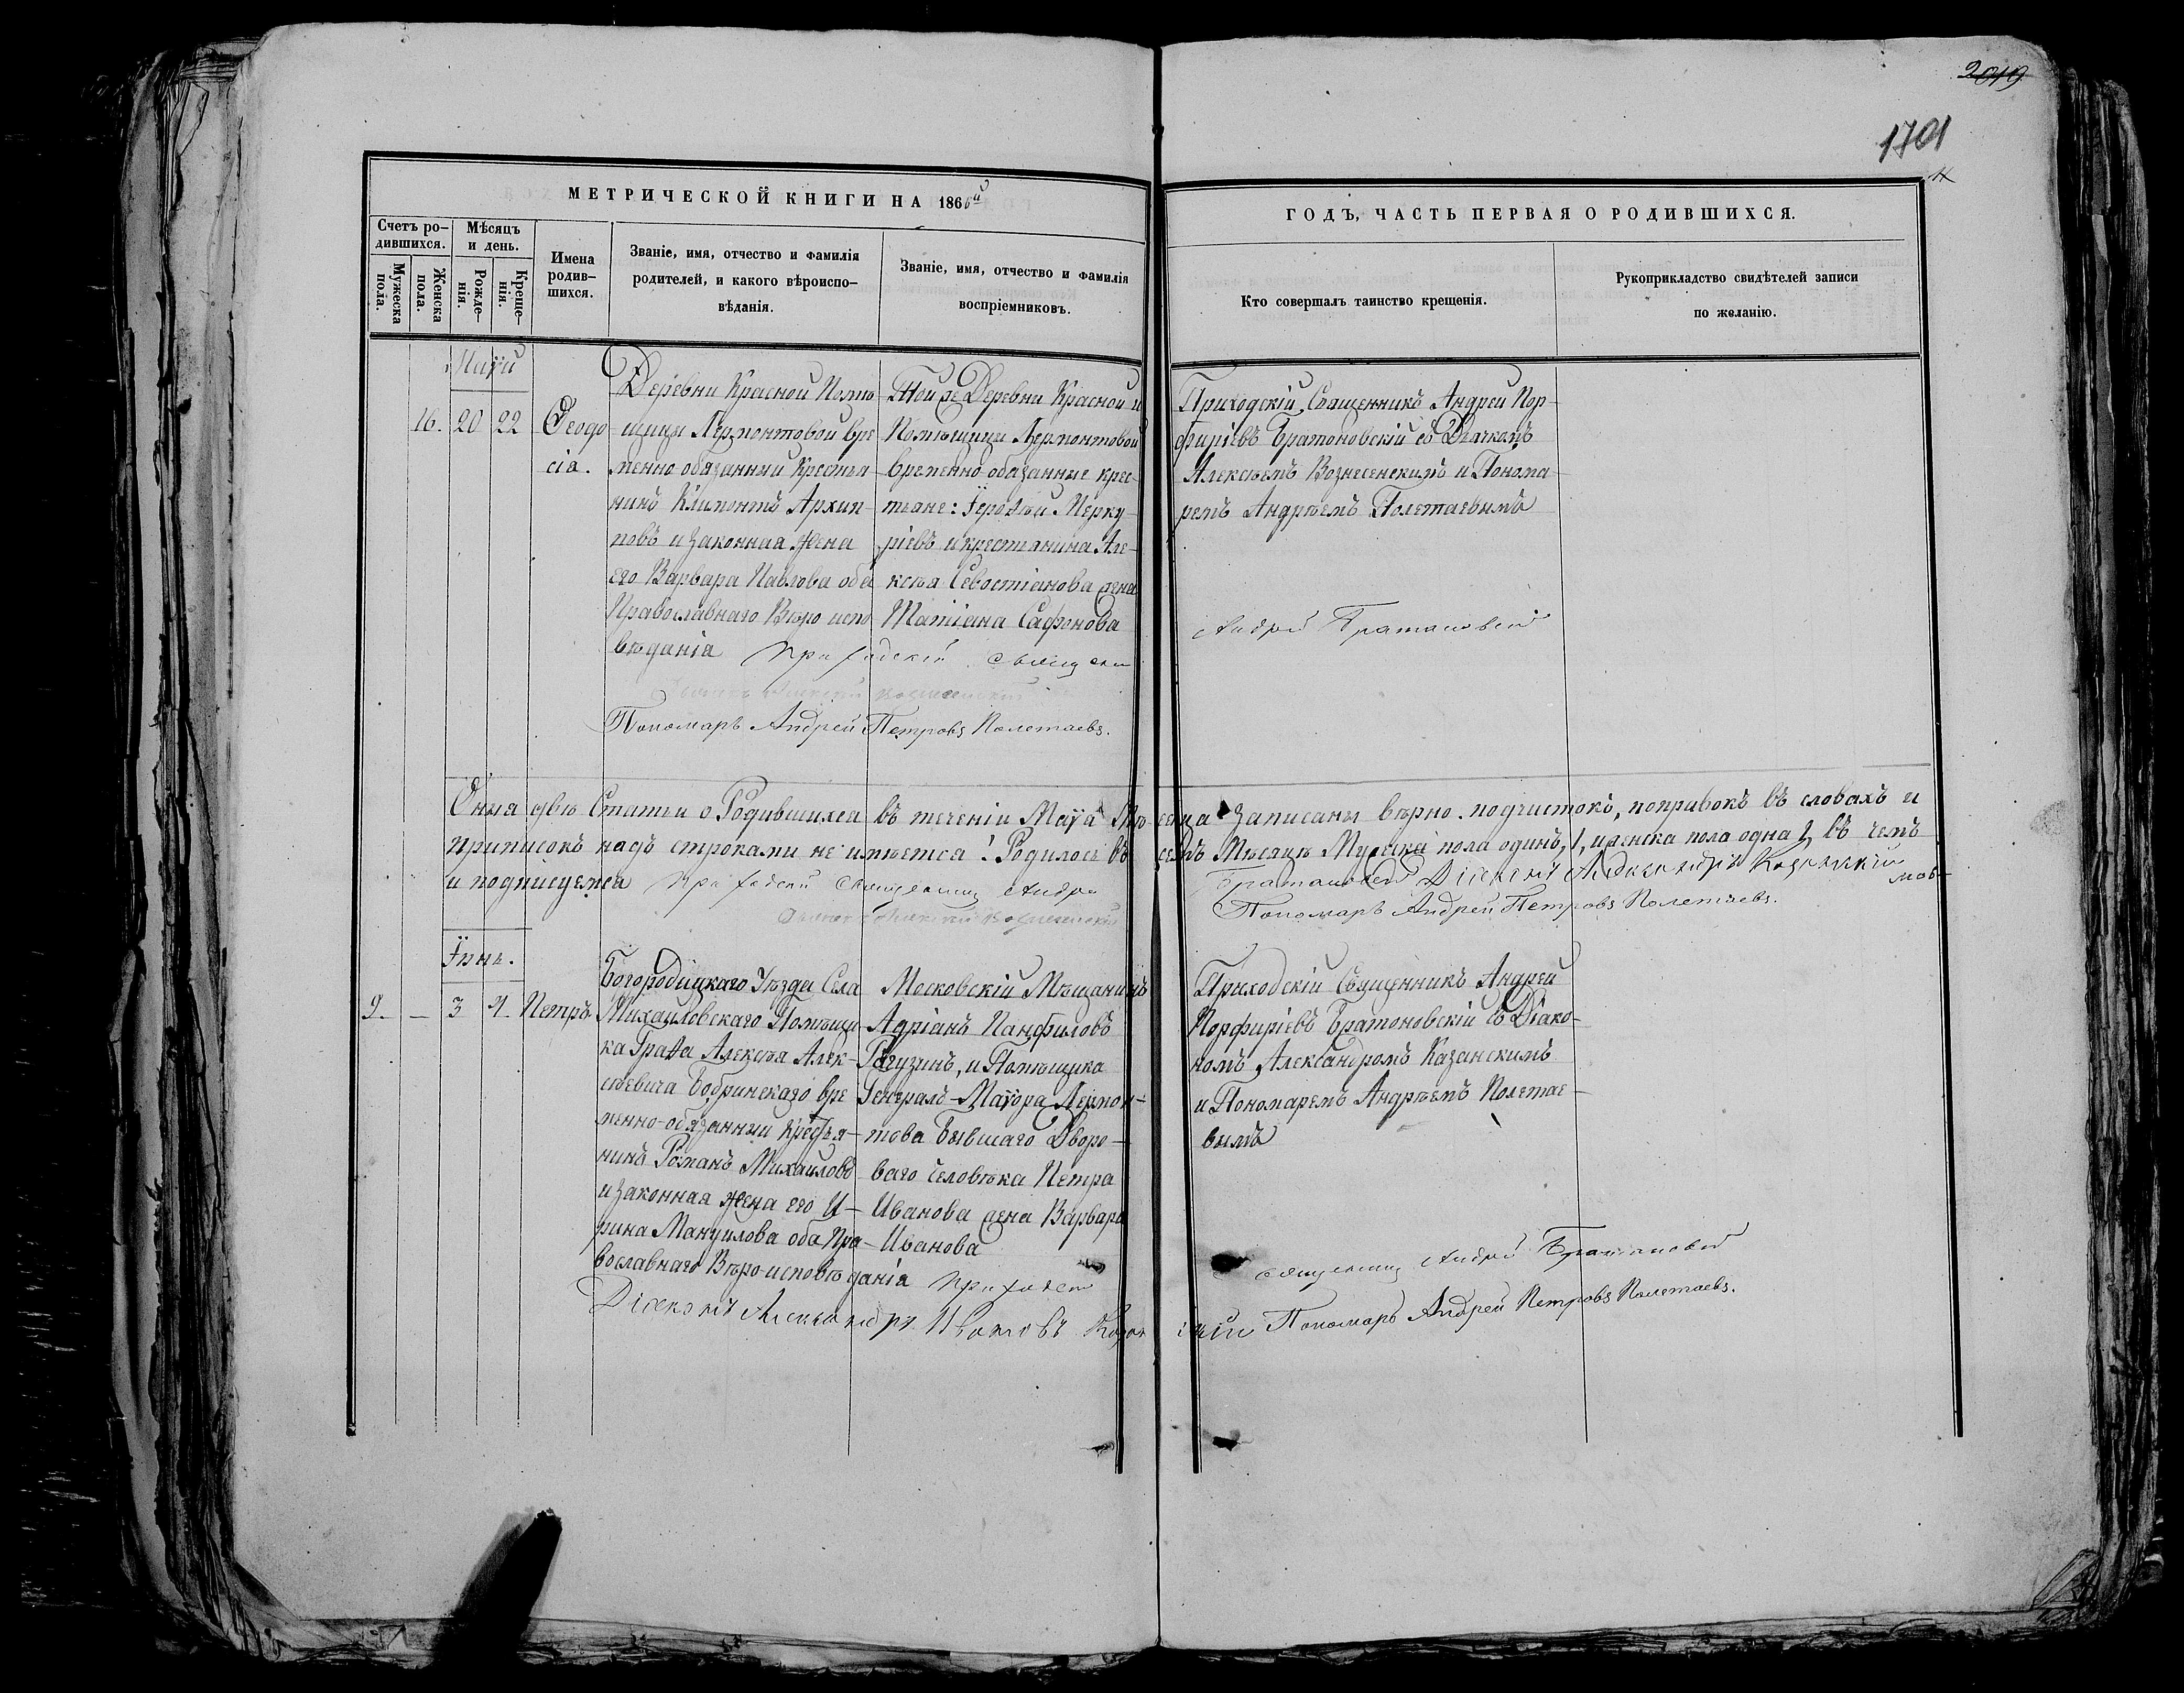 2019
1701
МЕТРИЧЕСКОЙ КНИГИ НА 1866й
ГОДЪ, ЧАСТЬ ПЕРВАЯ О РОДИВШИХСЯ.
Счетъ ро-
дившихся.
Мужеска
пола.
Женска
пола.
Мѣсяцъ
и день.
Рожде-
нія.
Креще-
нія.
Имена
родив-
шихся.
Званіе, имя, отчество и фамилія
родителей, и какого вѣроиспо-
вѣданія.
Званіе, имя, отчество и фамилія
воспріемниковъ.
Кто совершалъ таинство крещенія.
Рукоприкладство свидѣтелей записи
по желанію.
16. 20 22
Ѳеодо
сіа.
Деревни Красной Помѣ
щицы Лермонтовой вре
менно обязанный Крестья
нинъ Климонтъ Архип-
повъ и законная жена
его Варвара Павлова оба
Православнаго Вѣро испо
вѣданіа
Той же Деревни Красной и
Помѣщицы Лермонтовой
временно обазанные крес-
тьяне: Ѵероѳѣй Мерку-
ріевъ и крестянина Але-
ксѣа Севостіанова жена
Татіана Сафонова
Приходскій Священникъ Андрей Пор-
фиріевъ Братоновскій съ Дьячкомъ
Алексѣемъ Вознесенскимъ и Понома-
ремъ Андрѣемъ Полетаевымъ
Приходскій Священн
Андрей Братановскій
Пономарь Андрей Петровъ Полетаевъ.
Оныя двѣ Статьи о Родившихса въ теченіи Маѵа Мѣсеца записаны вѣрно. подчистокъ, поправокъ въ словахъ и
приписокъ надъ строками не имѣетса! Родилось въ семъ Мѣсяцѣ Мужска пола одинъ, 1, и женска пола одна 1, въ чемъ
и подписуемса Приходскій Священникъ Андрей Братановскій Діаконъ Александръ
Пономарь Андрей Петровъ Полетаевъ.
Ѵюнь.
9. — 3 4. Петръ
Богородицкаго Уѣзда Села
Михайловскаго Помѣщи
ка Графа Алексѣя Алек-
сѣевича Бобринскаго вре
менно-обязанный Крестья-
нинъ Романъ Михайловъ
и законная жена его И-
рина Мануилова оба Пра-
вославнаго Вѣро-исповѣданіа
Московскій Мѣщанинъ
Адріанъ Панфиловъ
Рагузинъ, и Помѣщика
Генералъ-Маѵора Лермон-
това бывшаго Дворо-
ваго человѣка Петра
Иванова жена Варвара
Иванова
Приходскій Священникъ Андрей
Порфиріевъ Братоновскій съ Діако-
номъ Александромъ Казанскимъ
и Пономаремъ Андрѣемъ Полетае-
вымъ
Приходскій Священникъ Андрей Братановскій
Діаконъ Александръ Казанскій Пономарь Андрей Петровъ Полетаевъ.